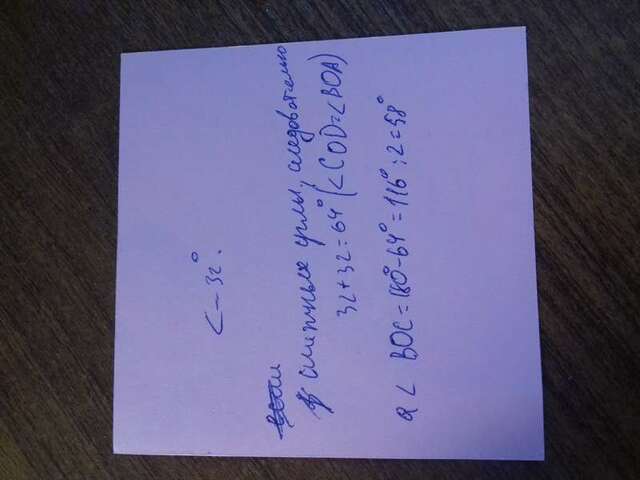 < – 32°.
У смежных углы, следовательно
32+32=64° (<COD=<BOA)
а < BOC=180°-64°=116°:2=58°